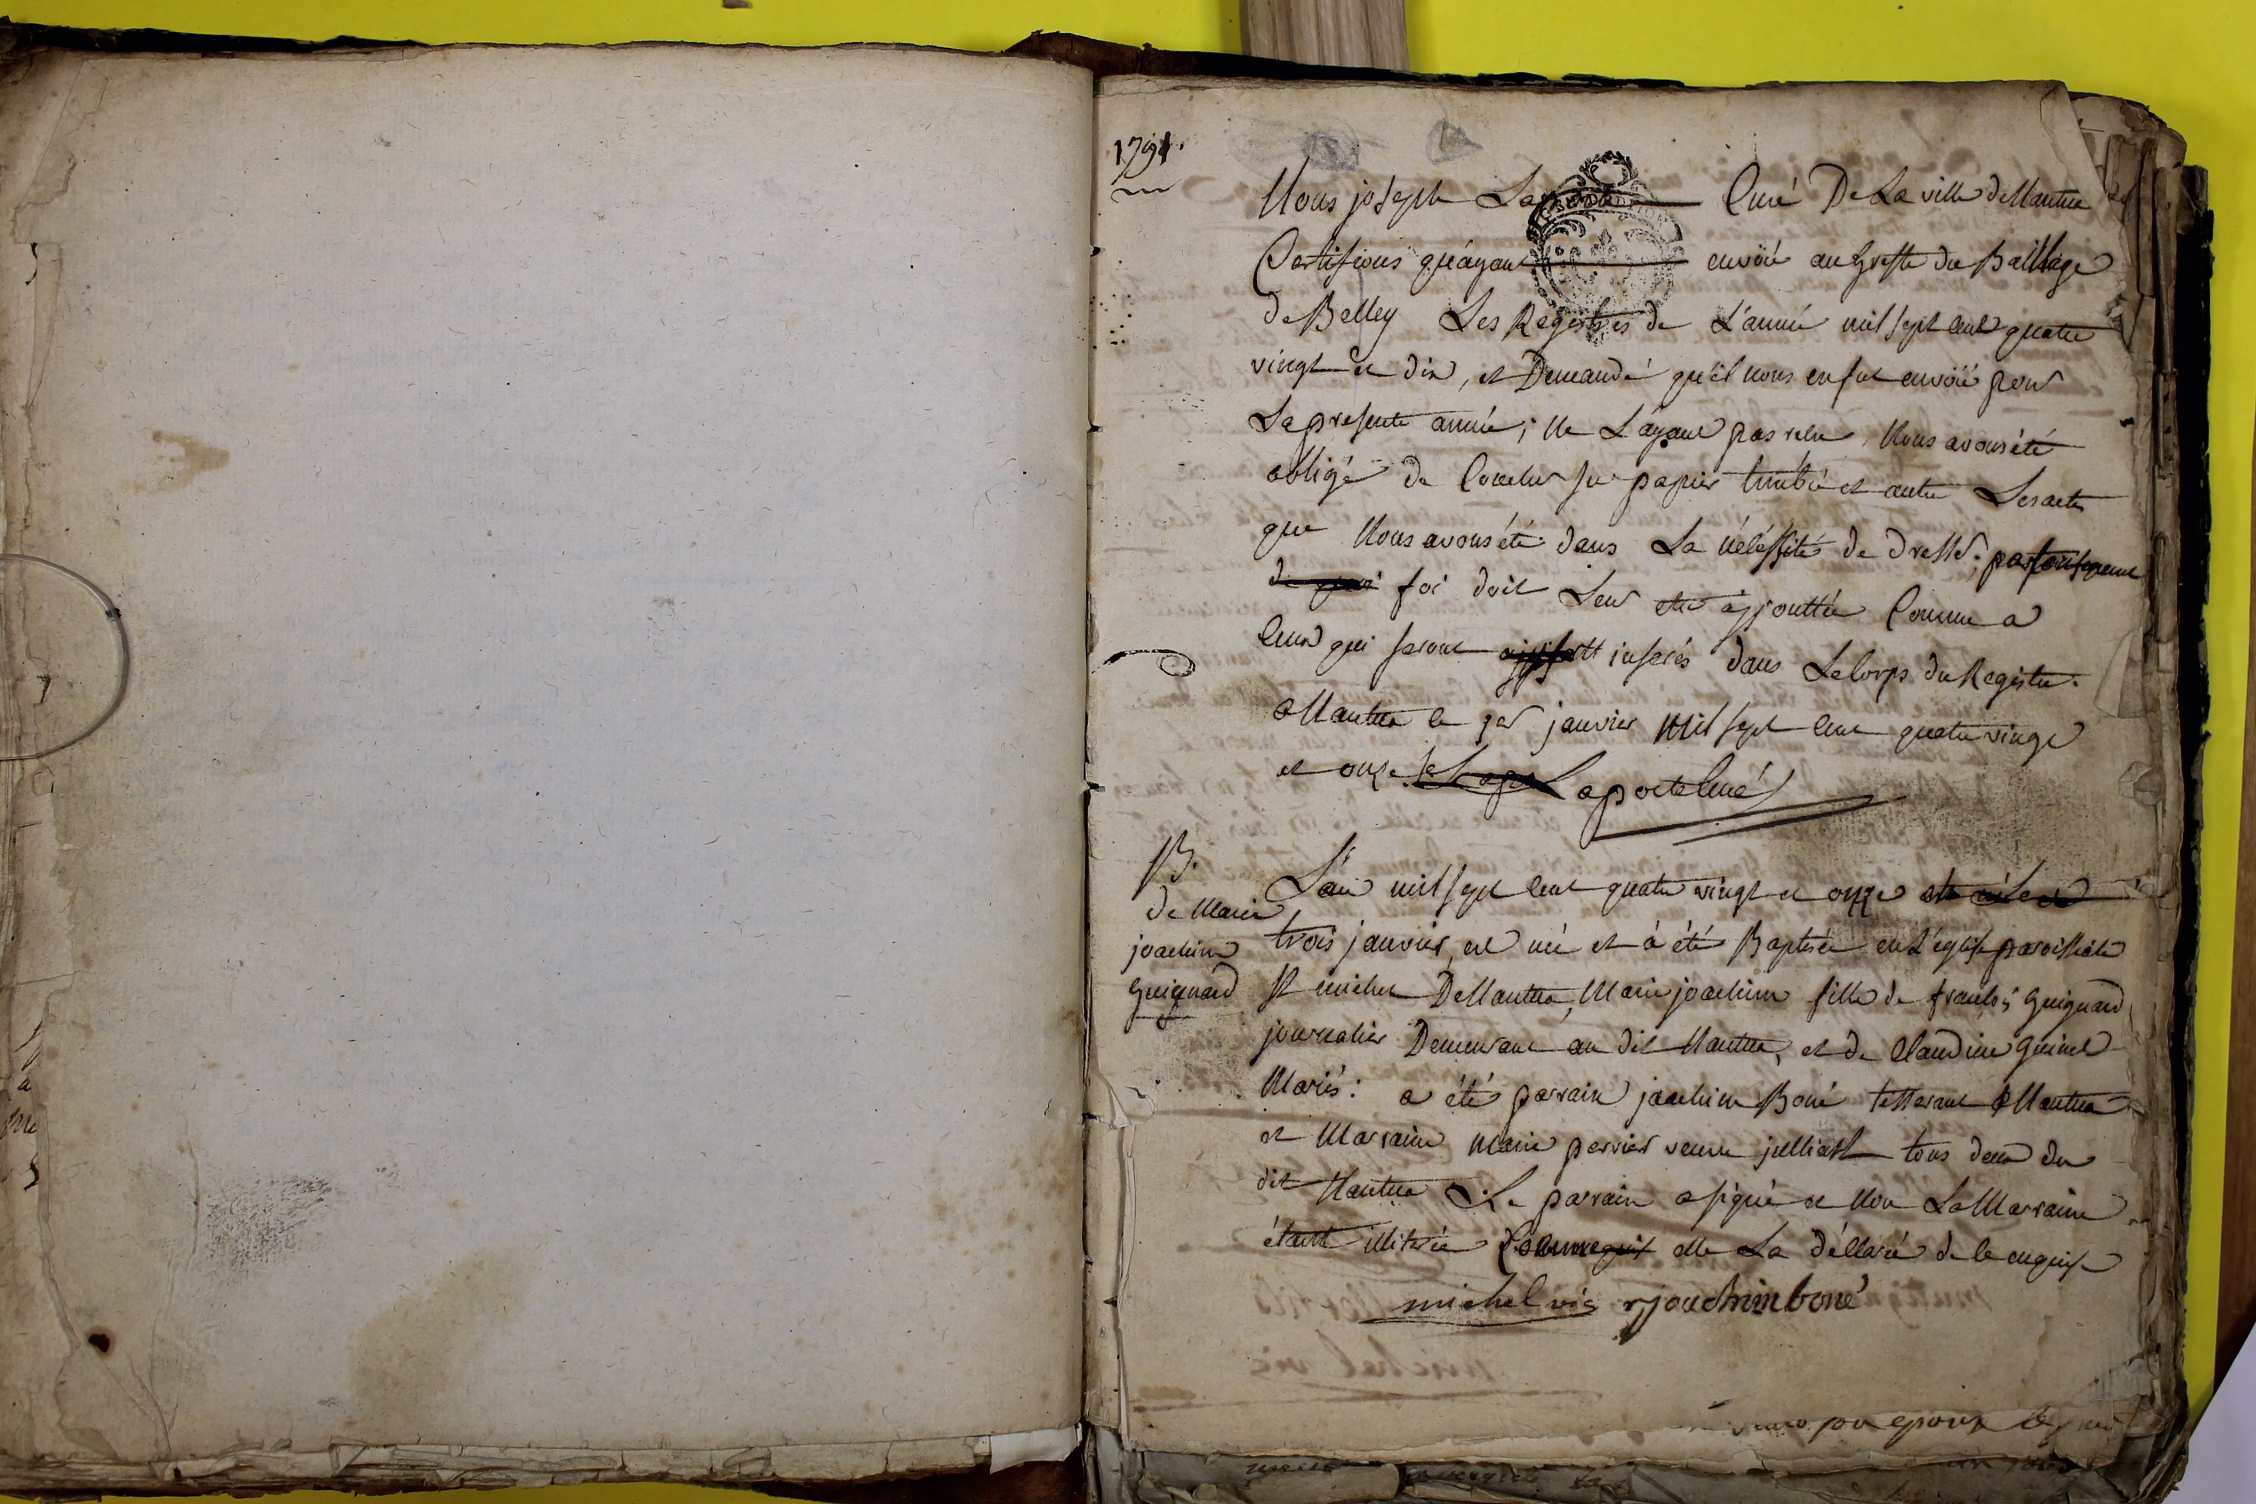 1791.
Nous joseph Laporte Curé De La ville de Nantua
Certifions qu'ayant envoïé au Greffe du Bailliage
de Belley Les Registres de L'année mil sept cent quatre
vingt et dix, et Demandé qu'il nous en fut envoïé pour
La presente année; ne L'ayant pas reçu, Nous avons été
obligé de Coucher sur papier timbré et autre Les actes
que Nous avons été dans La nécéssité de dresser; par conséquent
foi doit Leur etre ajjouttée Comme a
Ceux qui seront inserés dans Le Corps du Registre.
a Nantua le 1er janvier Mil sept Cent quatre vingt
et onze. Laporte Curé
B.
de Marie
joachim
Guignard
L'an mil sept Cent quatre vingt et onze
trois janvier, est née et à été Baptisée en L'eglise paroissiale
St michel De Nantua, Marie joachim fille de françois Guignard
journalier Demeurant au dit Nantua, et de Claudine
Mariés: a été parrain joachim Boné a Nantua
et Marraine Marie perrier veuve julliard tous deux du
dit Nantua. Le parrain a signé et Non La Marraine
étant illitérée elle La déclaré de ce enquise
michel vic joachim boné